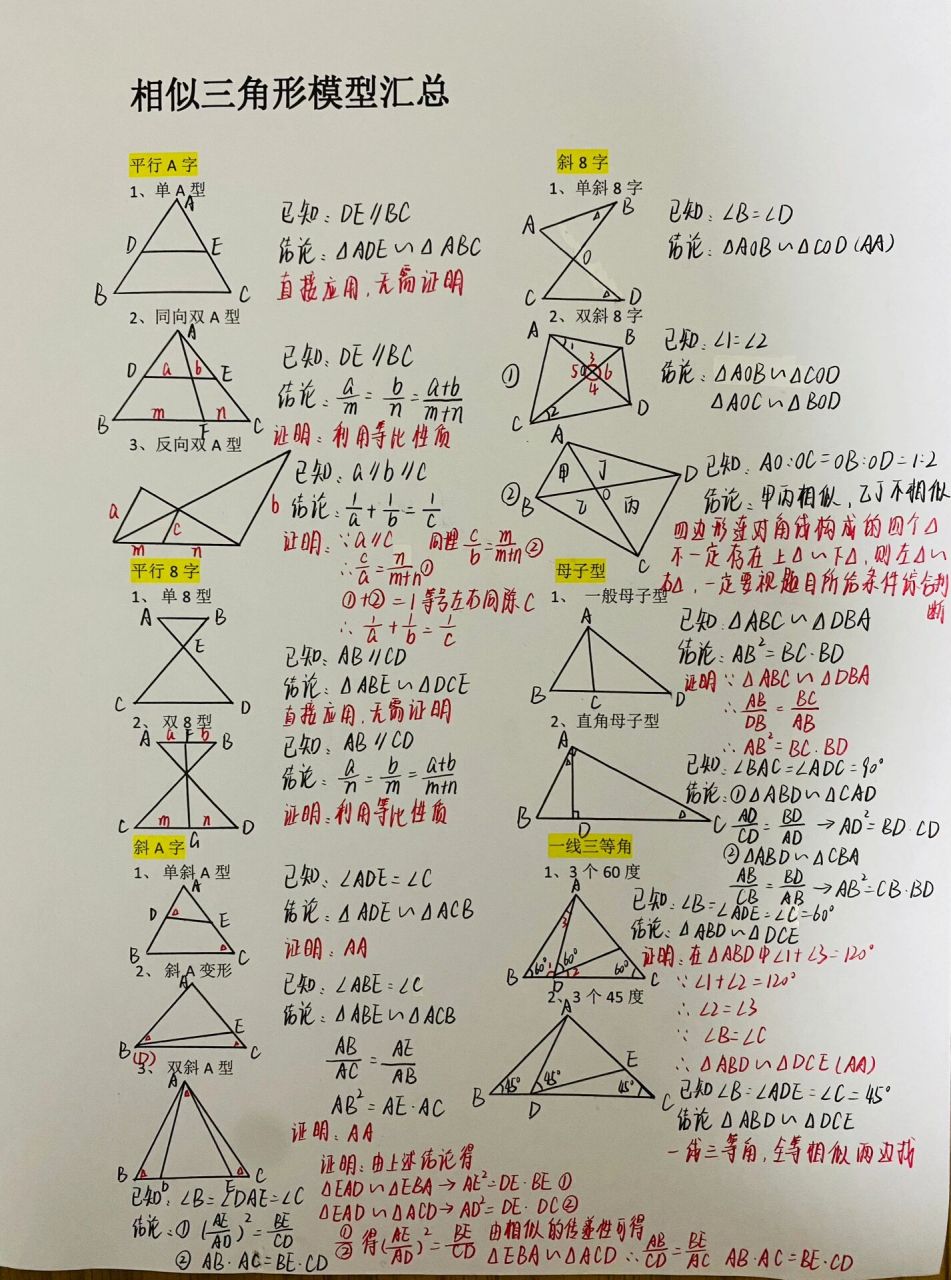 相似三角形模型汇总
平行A字
1、单A型
A
D E
B C
已知：DE∥BC
结论：△ADE∽△ABC
直接应用，无需证明
2、同向双A型
A
D a b E
m n
B F C
已知：DE∥BC
结论：a/m = b/n = a+b/m+n
证明：利用等比性质
3、反向双A型
a c b
m n
已知：a∥b∥c
结论：1/a + 1/b = 1/c
证明：∵a∥c 同理 c/b = m/m+n ②
∴ c/a = n/m+n ①
①+②=1等号左右同除C
∴ 1/a + 1/b = 1/c
平行8字
1、单8型
A B
E
C D
已知：AB∥CD
结论：△ABE∽△DCE
直接应用，无需证明
2、双8型
a F b
A B
m n
C G D
已知：AB∥CD
结论：a/n = b/m = a+b/m+n
证明：利用等比性质
斜A字
1、单斜A型
A
D E
B C
已知：∠ADE=∠C
结论：△ADE∽△ACB
证明：AA
2、斜A变形
A
E
B C
(D)
已知：∠ABE=∠C
结论：△ABE∽△ACB
AB/AC = AE/AB
AB²=AE·AC
证明：AA
3、双斜A型
A
B D E C
已知：∠B=∠DAE=∠C
结论：① (AE/AD)² = BE/CD
② AB·AC=BE·CD
证明：由上述结论得
△EAD∽△EBA→AE²=DE·BE ①
△EAD∽△ACD→AD²=DE·DC ②
①/② 得(AE/AD)² = BE/CD 由相似的传递性可得
△EBA∽△ACD ∴ AB/CD = BE/AC AB·AC=BE·CD
斜8字
1、单斜8字
B
A
O
C D
已知：∠B=∠D
结论：△AOB∽△COD(AA)
2、双斜8字
①
A B
1 3
5 O 6
4
2
C D
已知：∠1=∠2
结论：△AOB∽△COD
△AOC∽△BOD
②
A
甲 丁 D
B O
乙 丙
C
已知：AO:OC=OB:OD=1:2
结论：甲丙相似，乙丁不相似
四边形连对角线构成的四个△
不一定存在上△∽下△，则左△∽
右△，一定要视题目所给条件综合判
断
母子型
1、一般母子型
A
B C D
已知：△ABC∽△DBA
结论：AB²=BC·BD
证明∵△ABC∽△DBA
∴ AB/DB = BC/AB
∴ AB²=BC·BD
2、直角母子型
A
B D C
已知：∠BAC=∠ADC=90°
结论：①△ABD∽△CAD
AD/CD = BD/AD → AD²=BD·CD
②△ABD∽△CBA
AB/CB = BD/AB → AB²=CB·BD
一线三等角
1、3个60度
A
3
60° 1 60° 2 60°
B D C
已知：∠B=∠ADE=∠C=60°
结论：△ABD∽△DCE
证明：在△ABD中∠1+∠3=120°
∵∠1+∠2=120°
∴∠2=∠3
∵ ∠B=∠C
∴△ABD∽△DCE(AA)
2、3个45度
A
E
45° 45° 45°
B D C
已知∠B=∠ADE=∠C=45°
结论△ABD∽△DCE
一线三等角，全等相似两边找